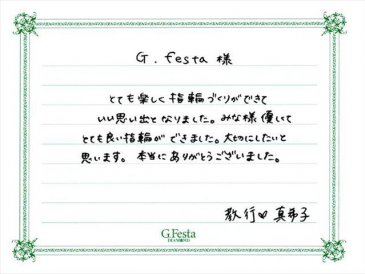 G. festa 様
とても楽しく指輪づくりができて
いい思い出となりました。みな様優しくて
とても良い指輪ができました。大切にしたいと
思います。本当にありがとうございました。
教行♡真弓子
G.Festa
DIAMOND